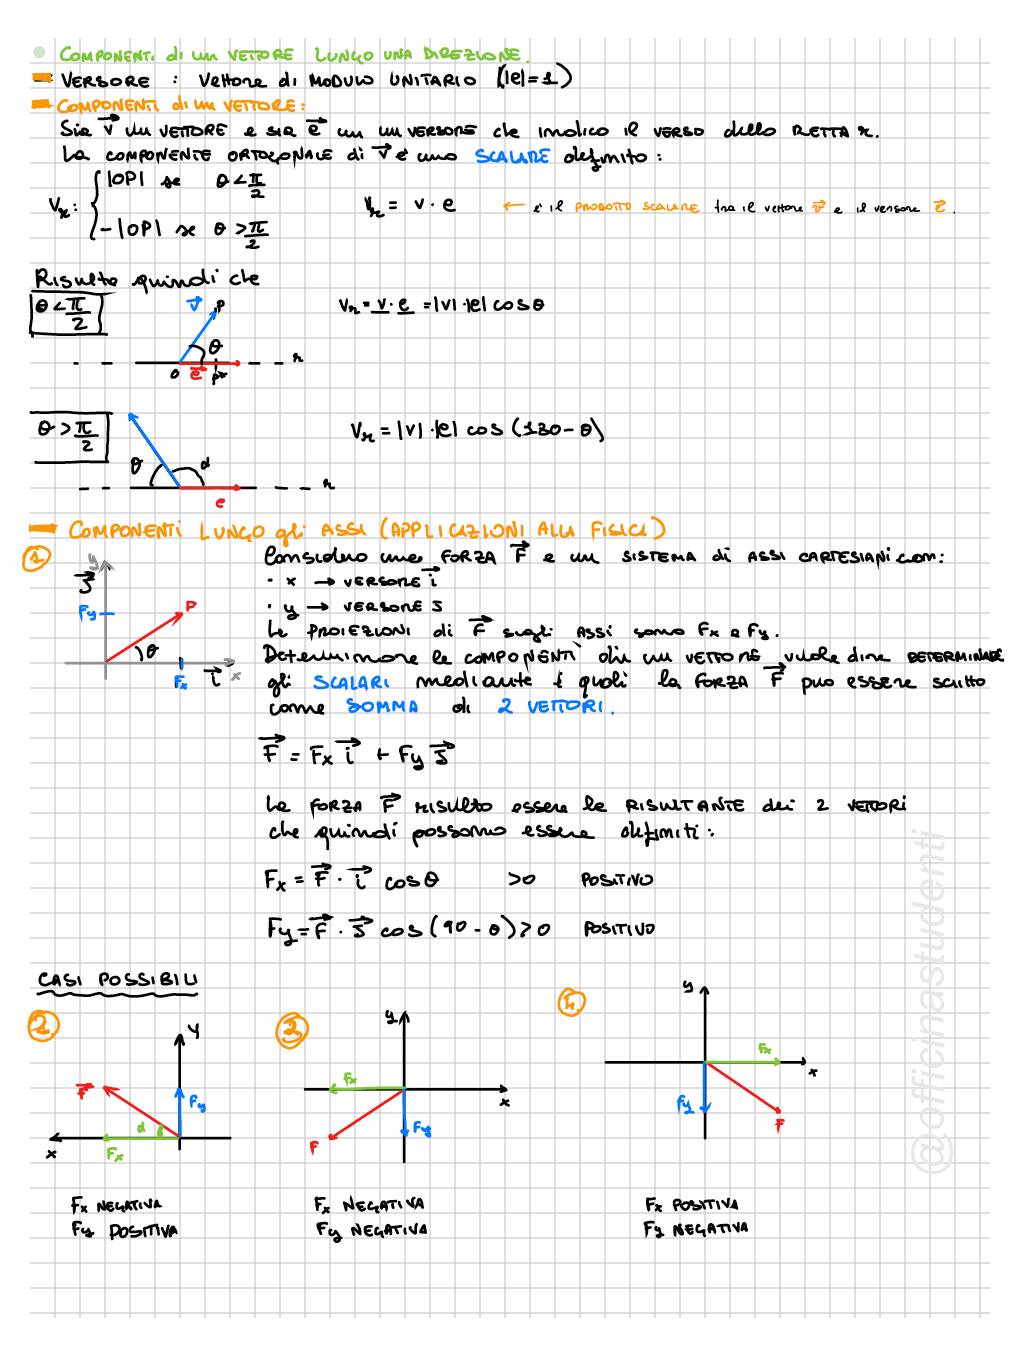 COMPONENTI di un VETTORE LUNGO UNA DIREZIONE.
VERSORE : Vettore di MODULO UNITARIO (|e|=1)
COMPONENTI di un VETTORE:
Sia v⃗ un VETTORE e sia e⃗ un un VERSORE che indica il VERSO della RETTA r.
La COMPONENTE ORTOGONALE di v⃗ è uno SCALARE definito :
Vr : { |OP| se θ < π/2
- |OP| se θ > π/2
Vr = v · e ← è il PRODOTTO SCALARE tra il vettore v⃗ e il versore e⃗.
Risulta quindi che
θ < π/2
v⃗ P
θ
O e⃗ P* r
Vr = v · e = |v| · |e| cos θ
θ > π/2
θ α
e r
Vr = |v| · |e| cos (180 - θ)
COMPONENTI LUNGO gli ASSI (APPLICAZIONI ALLA FISICA)
1
y
J⃗
Fy P
θ
Fx i⃗ x
Considero una FORZA F⃗ e un SISTEMA di ASSI CARTESIANI con:
· x → VERSORE i⃗
· y → VERSORE J
Le PROIEZIONI di F⃗ sugli ASSI sono Fx e Fy.
Determinare le COMPONENTI di un VETTORE vuole dire DETERMINARE
gli SCALARI mediante i quali la FORZA F⃗ può essere scritto
come SOMMA di 2 VETTORI.
F⃗ = Fx i⃗ + Fy J⃗
La FORZA F⃗ risulta essere la RISULTANTE dei 2 VETTORI
che quindi possono essere definiti :
Fx = F⃗ · i⃗ cos θ >0 POSITIVO
Fy = F⃗ · J⃗ cos (90 - θ) > 0 POSITIVO
CASI POSSIBILI
2
y
F⃗
Fy
α
x Fx
Fx NEGATIVA
Fy POSITIVA
3
y
Fx
x
F Fy
Fx NEGATIVA
Fy NEGATIVA
4.
y
Fx
x
Fy
F
Fx POSITIVA
Fy NEGATIVA
@officinastudenti